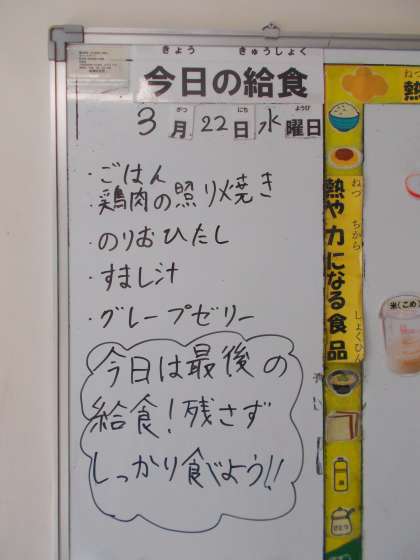 きょう きゅうしょく
今日の給食
がつ にち ようび
3月22日水曜日
・ごはん
・鶏肉の照り焼き
・のりおひたし
・すまし汁
・グレープゼリー
今日は最後の
給食！残さず
しっかり食べよう!!
ねつ
熱
ねつ ちから しょくひん
熱や力になる食品
米(こめ